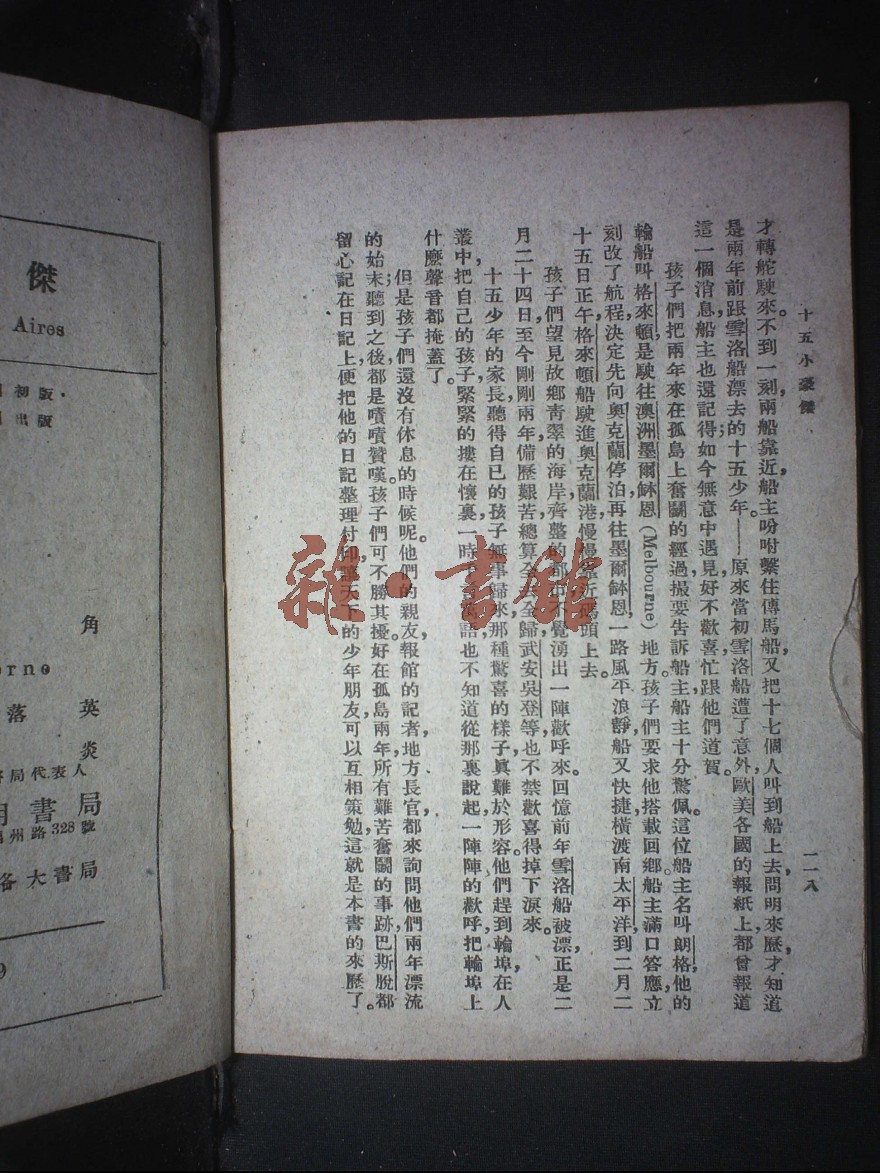 十五小豪傑
一一八
才轉舵駛來。不到一刻，兩船靠近，船主吩咐繫住傳馬船，又把十七個人叫到船上去，問明來歷，才知道
是兩年前跟雪洛船漂去的十五少年——原來當初雪洛船遭了意外，歐美各國的報紙上，都曾報道
這一個消息，船主也還記得；如今無意中遇見，好不歡喜，忙跟他們道賀。
孩子們把兩年來在孤島上奮鬭的經過，撮要告訴船主，船主十分驚佩。這位船主名叫朗格，他的
輪船叫格來頓，是駛往澳洲墨爾鉢恩(Melbourne)地方。孩子們要求他搭載回鄉，船主滿口答應，立
刻改了航程，決定先向奧克蘭停泊，再往墨爾鉢恩。一路風平浪靜，船又快捷，橫渡南太平洋，到二月二
十五日正午，格來頓船駛進奧克蘭港，慢慢靠近碼頭上去。
孩子們望見故鄉靑翠的海岸，齊整的都市，不覺湧出一陣歡呼來。回憶前年雪洛船被漂，正是二
月二十四日，至今剛剛兩年，備歷艱苦，總算全去全歸，武安吳登等也不禁歡喜得掉下淚來。
十五少年的家長，聽得自已的孩子無事歸來，那種驚喜的樣子，眞難於形容。他們趕到輪埠，在人
叢中，把自己的孩子緊緊的摟在懷裏，一時千言萬語，也不知道從那裏說起，一陣陣的歡呼，把輪埠上
什麼聲音都掩蓋了。
但是孩子們還沒有休息的時候呢。他們的親友，報館的記者，地方長官，都來詢問他們兩年漂流
的始末；聽到之後，都是嘖嘖贊嘆。孩子們可不勝其擾。好在孤島兩年，所有難苦奮鬭的事跡，巴斯脫都
留心記在日記上，便把他的日記整理付印，讓天下的少年朋友，可以互相策勉，這就是本書的來歷了。
傑
Aires
初版
出版
角
erne
落英
炎
局代表人
明書局
州路328號
各大書局
9
雜·書館